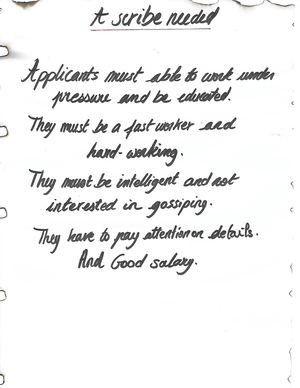 A scribe needed
Applicants must able to work under
pressure and be educated.
They must be a fast worker and
hard-working.
They must be intelligent and not
interested in gossiping.
They have to pay attention on details.
And Good salary.